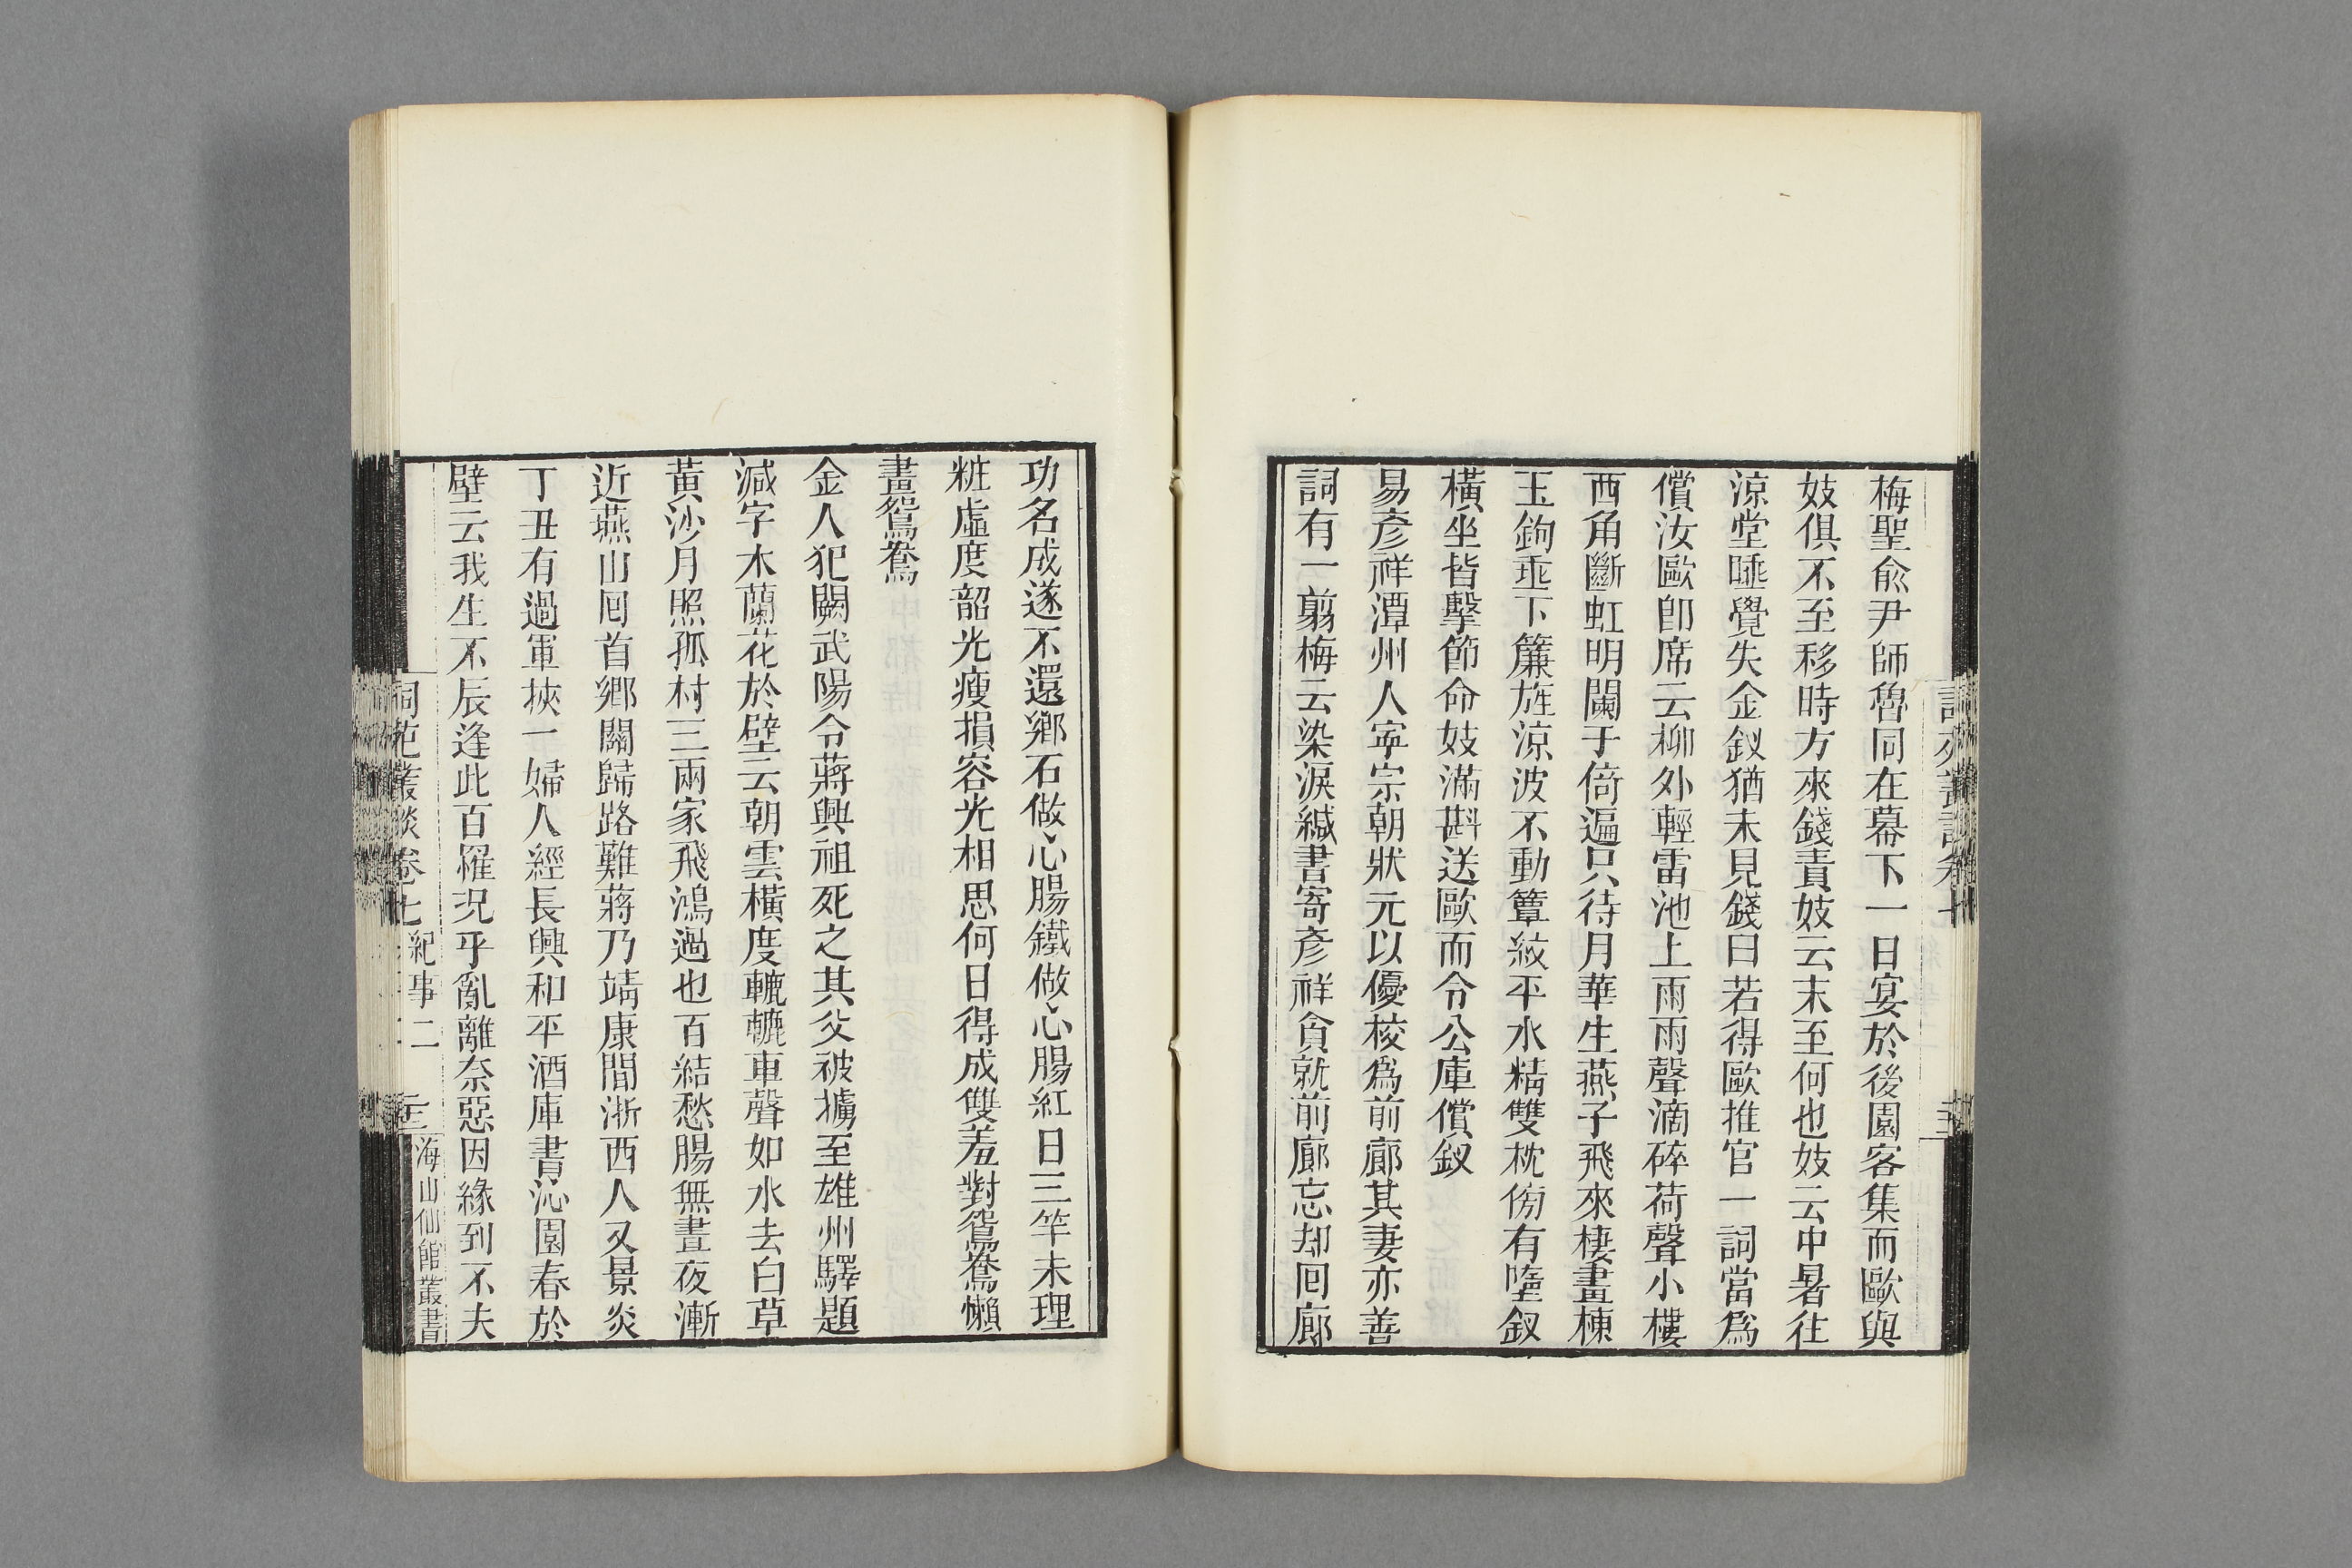 梅聖俞尹師魯同在幕下一日宴於後園客集而歐與
妓俱不至移時方來錢責妓云末至何也妓云中暑往
涼堂睡覺失金釵猶未見錢曰若得歐推官一詞當爲
償汝歐卽席云柳外輕雷池上雨雨聲滴碎荷聲小樓
西角斷虹明闌于倚遍只待月華生燕子飛來棲畫棟
玉鉤垂下簾旌涼波不動簟紋平水精雙枕傍有墮釵
橫坐皆擊節命妓滿斟送歐而令公庫償釵
易彥祥潭州人寧宗朝狀元以優校爲前廊其妻亦善
詞有一剪梅云染淚緘書寄彥祥貪就前廊忘却囘廊
功名成遂不還鄉石做心腸鐵做心腸紅日三竿未理
粧虛度韶光瘦損容光相思何日得成雙羞對鴛鴦懶
畫鴛鴦
金人犯闕武陽令蔣興祖死之其父被擄至雄州驛題
減字木蘭花於壁云朝雲橫度轆轆車聲如水去白草
黃沙月照孤村三兩家飛鴻過也百結愁腸無晝夜漸
近燕山囘首鄉關歸路難蔣乃靖康間浙西人又景炎
丁丑有過軍挾一婦人經長興和平酒庫書沁園春於
壁云我生不辰逢此百罹況乎亂離奈惡因緣到不夫
詞苑叢談卷七 紀事二
海山仙館叢書